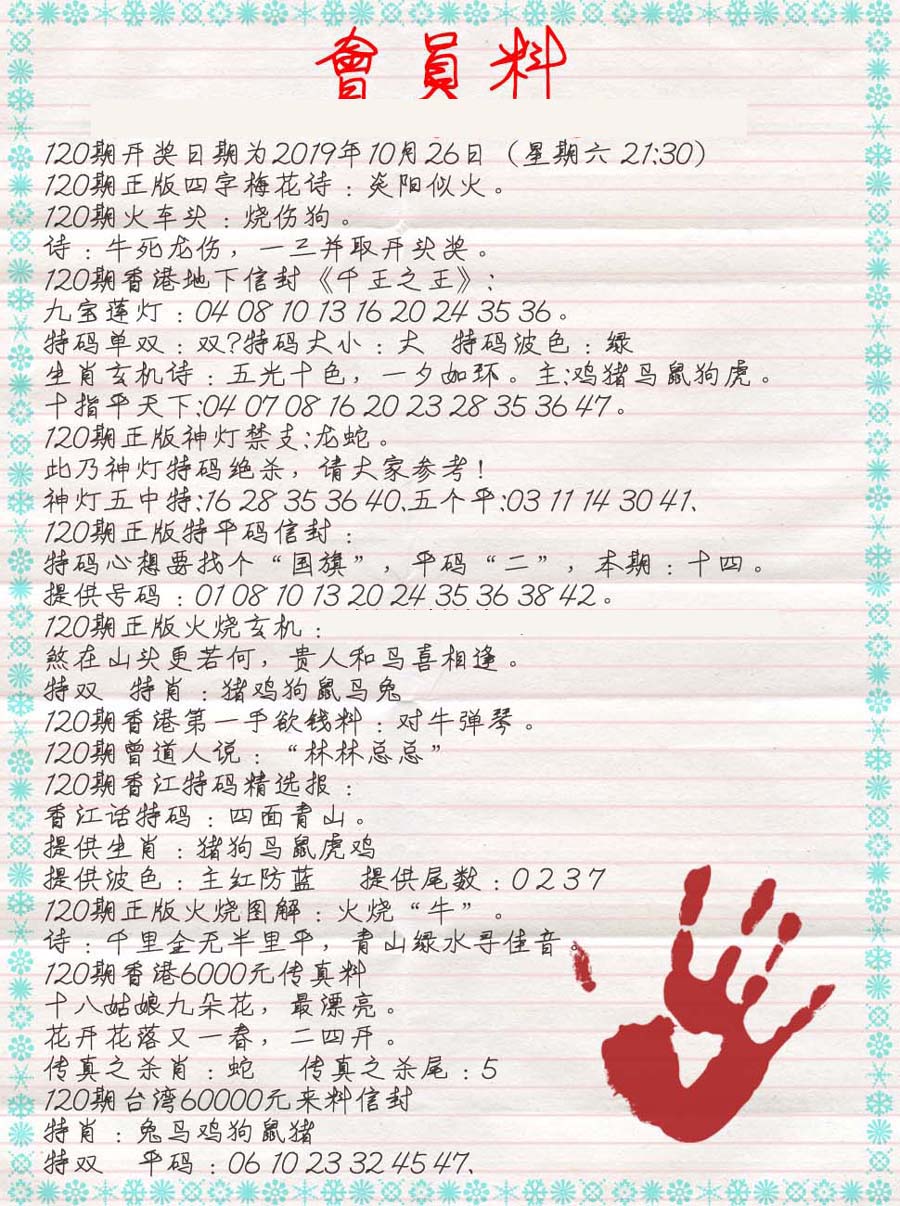 會員料
120期开奖日期为2019年10月26日（星期六 21:30）
120期正版四字梅花诗：炎阳似火。
120期火车头：烧伤狗。
诗：牛死龙伤，一三并取开头奖。
120期香港地下信封《千王之王》:
九宝莲灯：04 08 10 13 16 20 24 35 36。
特码单双：双?特码大小：大 特码波色：绿
生肖玄机诗：五光十色，一夕如环。主:鸡猪马鼠狗虎。
十指平天下:04 07 08 16 20 23 28 35 36 47。
120期正版神灯禁支:龙蛇。
此乃神灯特码绝杀，请大家参考!
神灯五中特:16 28 35 36 40.五个平:03 11 14 30 41、
120期正版特平码信封：
特码心想要找个“国旗”，平码“二”，本期：十四。
提供号码：01 08 10 13 20 24 35 36 38 42。
120期正版火烧玄机：
煞在山头更若何，贵人和马喜相逢。
特双 特肖：猪鸡狗鼠马兔
120期香港第一手欲钱料：对牛弹琴。
120期曾道人说：“林林总总”
120期香江特码精选报：
香江话特码：四面青山。
提供生肖：猪狗马鼠虎鸡
提供波色：主红防蓝 提供尾数：0 2 3 7
120期正版火烧图解：火烧“牛”。
诗：千里金无半里平，青山绿水寻佳音。
120期香港6000元传真料
十八姑娘九朵花，最漂亮。
花开花落又一春，二四开。
传真之杀肖：蛇 传真之杀尾：5
120期台湾60000元来料信封
特肖：兔马鸡狗鼠猪
特双 平码：06 10 23 32 45 47、